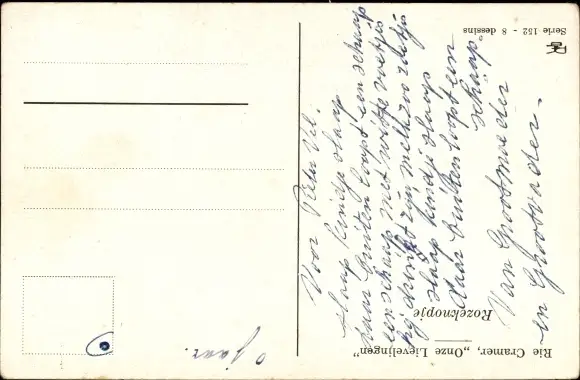 Rie Cramer, „Onze Lievelingen"
Rozeknopje
Serie 152 - 8 dessins
Voor Pieter Vil.
Slaap kindje slaap
daar buiten loopt een schaap
een schaap met witte voetjes
hij drinkt zijn melk zoo zoetjes
slaap kindje slaap
daar buiten loopt een
schaap.
Van Grootmoeder
en Grootvader.
jaar.